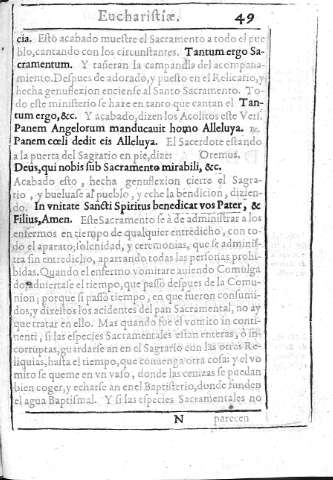 Euchariſtiæ. 49
cia. Eſto acabado mueſtre el Sacramento a todo el pue
blo, cantando con los circunſtantes. Tantum ergo Sa-
cramentum. Y tañeran la campanilla del acompana-
miento. Deſpues de adorado, y pueſto en el Relicario, y
hecha genuflexion encienſe al Santo Sacramento. To-
do eſte miniſterio ſe haze en tanto que cantan el Tan-
tum ergo, &c. Y acabado, dizen los Acolitos eſte Verſ.
Panem Angelorum manducauit homo Alleluya. ℞.
Panem cœli dedit eis Alleluya. El Sacerdote eſtando
a la puerta del Sagratio en pie, dize: Oremus.
Deus, qui nobis ſub Sacramento mirabili, &c.
Acabado eſto, hecha genuflexion cierre el Sagra-
tio, y bueluaſe al pueblo, y eche la bendicion, dizien-
do. In vnitate Sancti Spiritus benedicat vos Pater, &
Filius, Amen. Eſte Sacramento ſe à de adminiſtrar a los
enfermos en tiempo de qualquier entredicho, con to-
do el aparato, ſolenidad, y ceremonias, que ſe adminiſ-
tra ſin entredicho, apartando todas las perſonas prohi-
bidas. Quando el enfermo vomitare auiendo Comulga
do, aduiertaſe el tiempo, que paſſò deſpues de la Comu-
nion; porque ſi paſſò tiempo, en que fueron conſumi-
dos, y digeſtos los accidentes del pan Sacramental, no ay
que tratar en ello. Mas quando fue el vomito in conti-
nenti, ſi las eſpecies Sacramentales eſtan enteras, ò in-
corruptas, guardarſe an en el Sagrario con las otras Re-
liquias, haſta el tiempo, que conuenga otra coſa: y el vo
mito ſe queme en vn vaſo, donde las cenizas ſe puedan
bien coger, y echarſe an en el Baptiſterio, donde hunden
el agua Baptiſmal. Y ſi las eſpecies Sacramentales no
N parecen